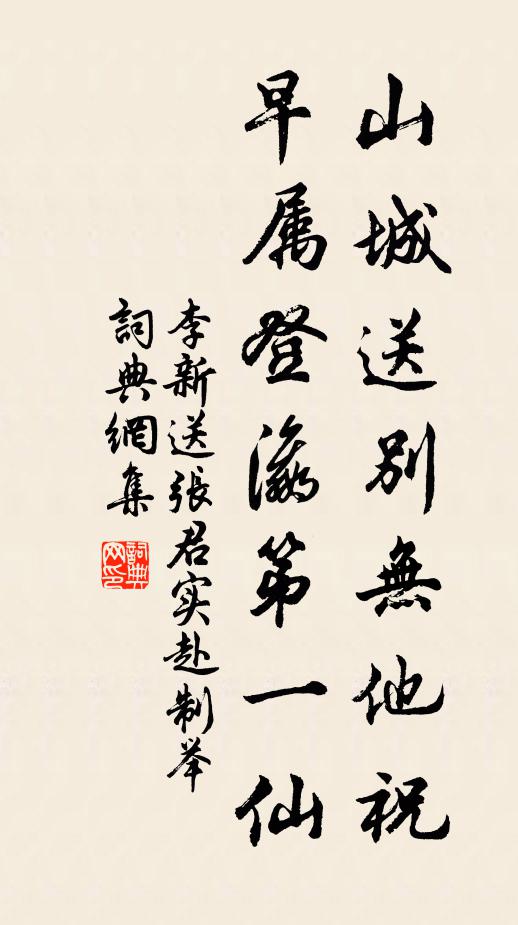 山城送別無他祝
早属登瀛第一仙
李新送張君实赴制举
詞典網集
詞典网印